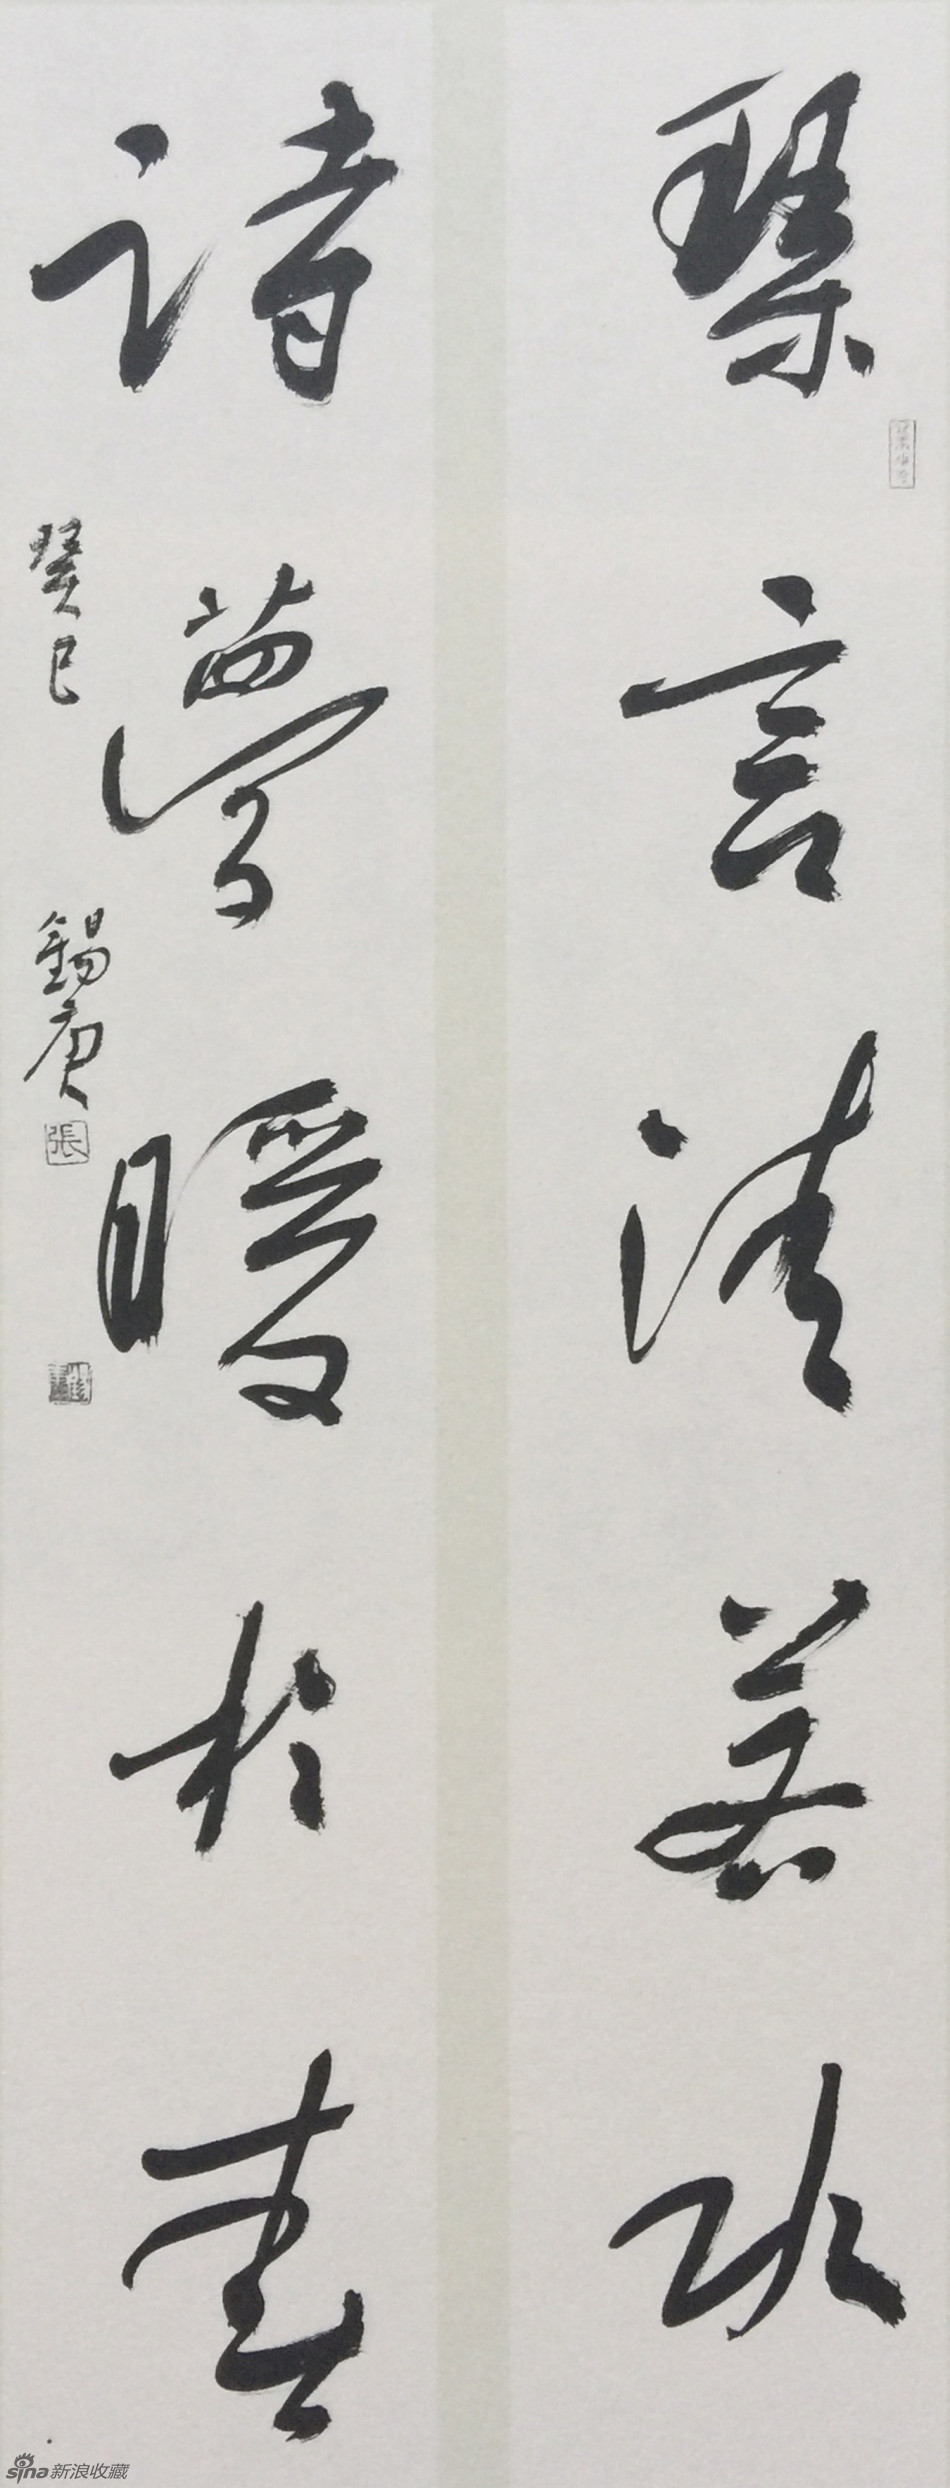 琴言清若水
詩夢暖於春
癸巳
錫庚
張
sina新浪收藏